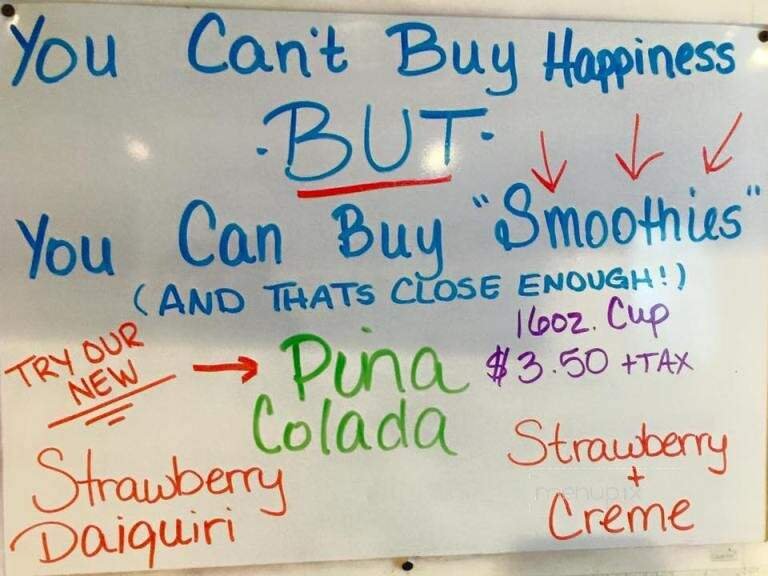 You Can't Buy Happiness
·BUT·
You Can Buy "Smoothies"
(AND THATS CLOSE ENOUGH!)
16oz. Cup
$3.50 +TAX
TRY OUR
NEW
Piña
Colada
Strawberry
Daiquiri
Strawberry
+
Creme
menupix